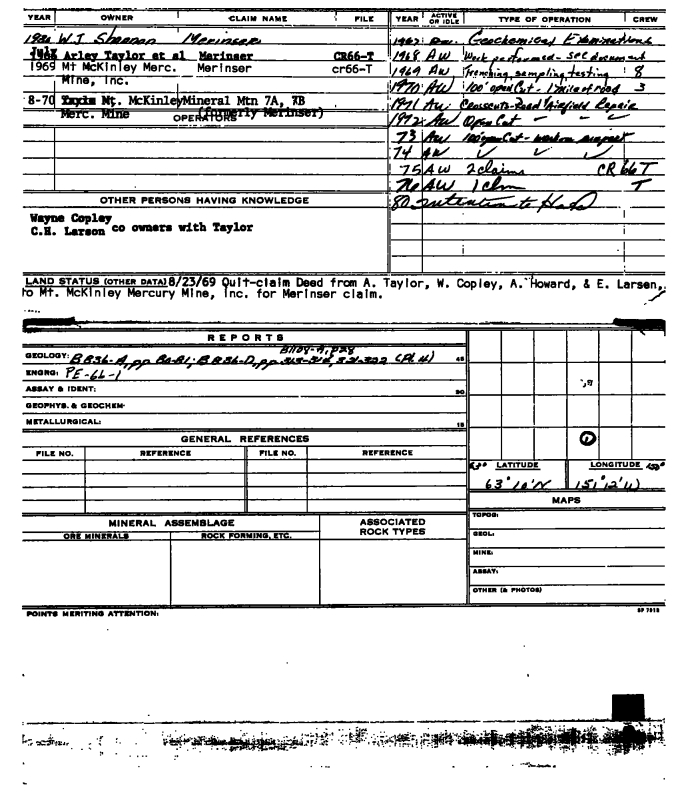 YEAR OWNER CLAIM NAME FILE YEAR ACTIVE OR IDLE TYPE OF OPERATION CREW
W.J. Shannon Merinser
July
1968 Arley Taylor et al Merinser CR66-T
1969 Mt McKinley Merc. Merinser cr66-T
Mine, Inc.
8-70 Taylor Mt. McKinley Mineral Mtn 7A, 7B
Merc. Mine (formerly Merinser)
OPERATORS
1967 Geochemical Examinations
1968 AW Work performed - see document
1969 AW Trenching, sampling testing 8
1970 AW 100' open Cut - 1 mile of road 3
1971 AW Road Airfield Repair
1972 AW Open Cut - - -
73 AW 100' open Cut -
74 AW ✓ ✓ ✓
75 AW 2 claims CR 66 T
76 AW 1 clm T
80 intention to Hold
OTHER PERSONS HAVING KNOWLEDGE
Wayne Copley
C.H. Larson co owners with Taylor
LAND STATUS (OTHER DATA) 8/23/69 Quit-claim Deed from A. Taylor, W. Copley, A. Howard, & E. Larsen,
to Mt. McKinley Mercury Mine, Inc. for Merinser claim.
REPORTS
B1108-A, p28
GEOLOGY: B 836-A, pp B836-D, pp (Pl 4) 45
ENGRG: PE-66-1
ASSAY & IDENT: 30
GEOPHYS. & GEOCHEM-
METALLURGICAL: 15
GENERAL REFERENCES
FILE NO. REFERENCE FILE NO. REFERENCE
63° LATITUDE LONGITUDE 150°
63°10'N 151°12'W
MAPS
TOPOG:
GEOL:
MINE:
ASSAY:
OTHER (& PHOTOS)
MINERAL ASSEMBLAGE ASSOCIATED ROCK TYPES
ORE MINERALS ROCK FORMING, ETC.
POINTS MERITING ATTENTION:
SP 7012